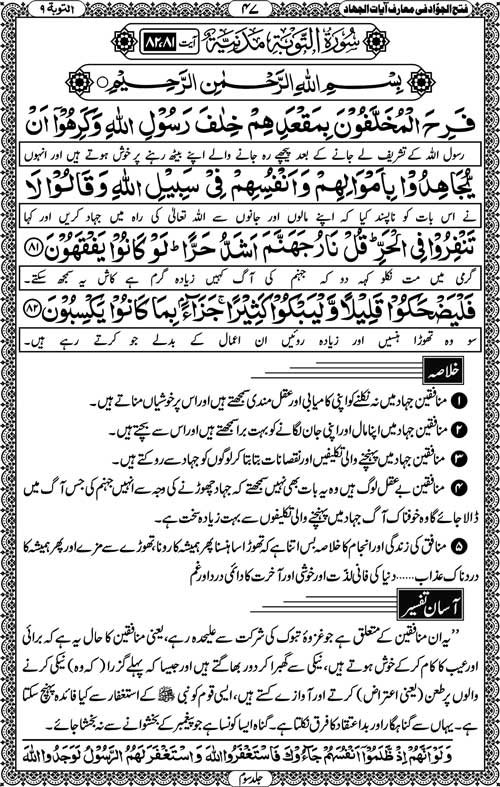 فتح الجوّاد فی معارف آیات الجهاد
۴۷
التوبة ۹
سُوْرَةُ التَّوْبَةِ مَدَنِيَّةٌ
آیت ۸۲،۸۱
بِسْمِ اللهِ الرَّحْمٰنِ الرَّحِيْمِ
فَرِحَ الْمُخَلَّفُوْنَ بِمَقْعَدِهِمْ خِلٰفَ رَسُوْلِ اللهِ وَكَرِهُوْٓا اَنْ
رسول اللہ کے تشریف لے جانے کے بعد پیچھے رہ جانے والے اپنے بیٹھ رہنے پر خوش ہوتے ہیں اور انہوں
يُّجَاهِدُوْا بِاَمْوَالِهِمْ وَاَنْفُسِهِمْ فِيْ سَبِيْلِ اللهِ وَقَالُوْا لَا
نے اس بات کو ناپسند کیا کہ اپنے مالوں اور جانوں سے اللہ تعالیٰ کی راہ میں جہاد کریں اور کہا
تَنْفِرُوْا فِي الْحَرِّ ؕ قُلْ نَارُ جَهَنَّمَ اَشَدُّ حَرًّا ؕ لَوْ كَانُوْا يَفْقَهُوْنَ ﴿۸۱﴾
گرمی میں مت نکلو کہہ دو کہ جہنم کی آگ کہیں زیادہ گرم ہے کاش یہ سمجھ سکتے۔
فَلْيَضْحَكُوْا قَلِيْلًا وَّلْيَبْكُوْا كَثِيْرًا ۚ جَزَآءًۢ بِمَا كَانُوْا يَكْسِبُوْنَ ﴿۸۲﴾
سو وہ تھوڑا ہنسیں اور زیادہ روئیں ان اعمال کے بدلے جو کرتے رہے ہیں۔
خلاصہ
۱ منافقین جہاد میں نہ نکلنے کو اپنی کامیابی اور عقل مندی سمجھتے ہیں اور اس پر خوشیاں مناتے ہیں۔
۲ منافقین جہاد میں اپنا مال اور اپنی جان لگانے کو بہت برا سمجھتے ہیں اور اس سے بچتے ہیں۔
۳ منافقین جہاد میں پہنچنے والی تکلیفیں اور نقصانات بتا بتا کر لوگوں کو جہاد سے روکتے ہیں۔
۴ منافقین بے عقل لوگ ہیں وہ یہ بات بھی نہیں سمجھتے کہ جہاد چھوڑنے کی وجہ سے انہیں جہنم کی جس آگ میں
ڈالا جائے گا وہ خوفناک آگ جہاد میں پہنچنے والی تکلیفوں سے بہت زیادہ سخت ہے۔
۵ منافق کی زندگی اور انجام کا خلاصہ بس اتنا ہے کہ تھوڑا سا ہنسنا پھر ہمیشہ کا رونا، تھوڑے سے مزے اور پھر ہمیشہ کا
دردناک عذاب...... دنیا کی فانی لذت اور خوشی اور آخرت کا دائمی درد اور غم
آسان تفسیر
’’یہ ان منافقین کے متعلق ہے جو غزوۂ تبوک کی شرکت سے علیحدہ رہے، یعنی منافقین کا حال یہ ہے کہ برائی
اور عیب کا کام کر کے خوش ہوتے ہیں، نیکی سے گھبرا کر دور بھاگتے ہیں اور جیسا کہ پہلے گزرا (کہ وہ) نیکی کرنے
والوں پر طعن (یعنی اعتراض) کرتے اور آوازے کستے ہیں، ایسی قوم کو نبی ﷺ کے استغفار سے کیا فائدہ پہنچ سکتا
ہے۔ یہاں سے گناہگار اور بداعتقاد کا فرق نکلتا ہے۔ گناہ ایسا کونسا ہے جو پیغمبر کے بخشوانے سے نہ بخشا جائے۔
وَلَوْ اَنَّهُمْ اِذْ ظَّلَمُوْٓا اَنْفُسَهُمْ جَآءُوْكَ فَاسْتَغْفَرُوا اللهَ وَاسْتَغْفَرَ لَهُمُ الرَّسُوْلُ لَوَجَدُوا اللهَ
جلد سوم